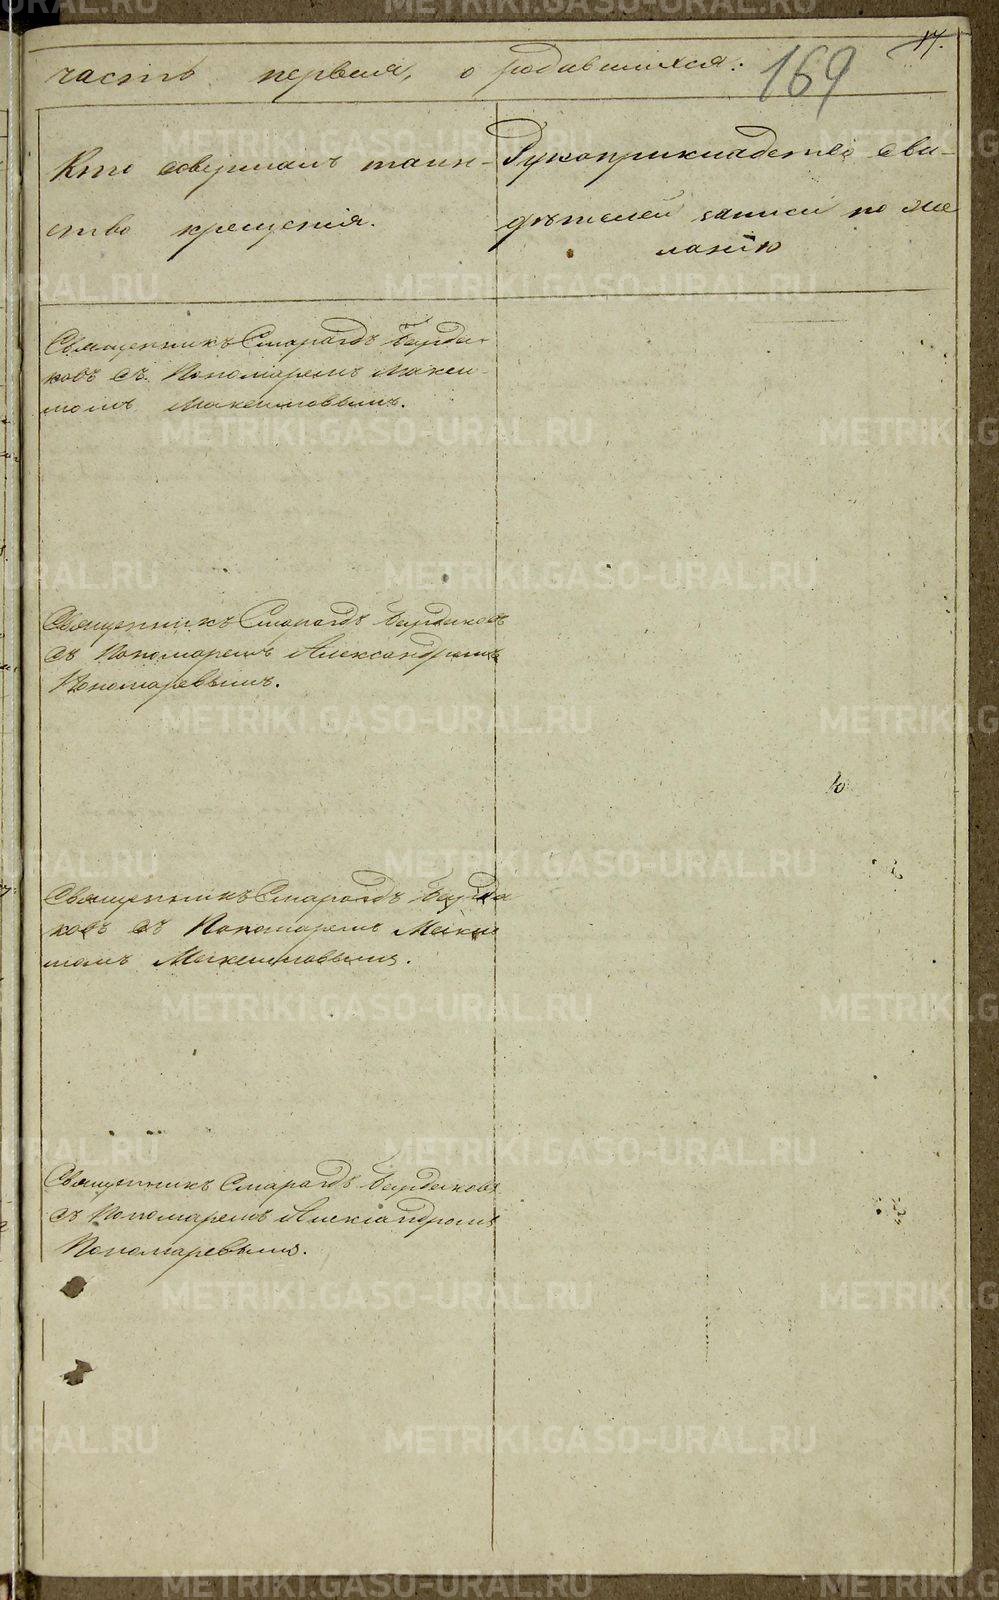 17.
часть первая, о родившихся:
169
Кто совершалъ таин-
ство крещенія.
Рукоприкладство сви-
дѣтелей записи по же
ланію
Священникъ Смарагдъ Бурды-
ковъ съ Пономаремъ Макси-
момъ Максимовымъ.
Священникъ Смарагдъ Бурдыковъ
съ Пономаремъ Александромъ
Пономаревымъ.
Священникъ Смарагдъ Бурды
ковъ съ Пономаремъ Макси
момъ Максимовымъ.
Священникъ Смарагдъ Бурдыковъ
съ Пономаремъ Александромъ
Пономаревымъ.
METRIKI.GASO-URAL.RU